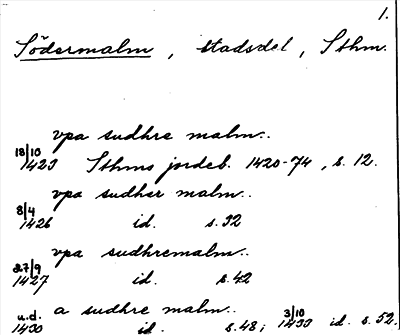 1.
Södermalm, stadsdel, Sthm.
vpa sudhre malm..
18/10 1423 Sthms jordeb. 1420-74, s. 12.
vpa sudher malm..
8/4 1426 id. s. 32
vpa sudhremalm..
27/9 1427 id. s. 42
a sudhre malm..
u.d. 1430 id. s. 48; 3/10 1439 id. s. 52.